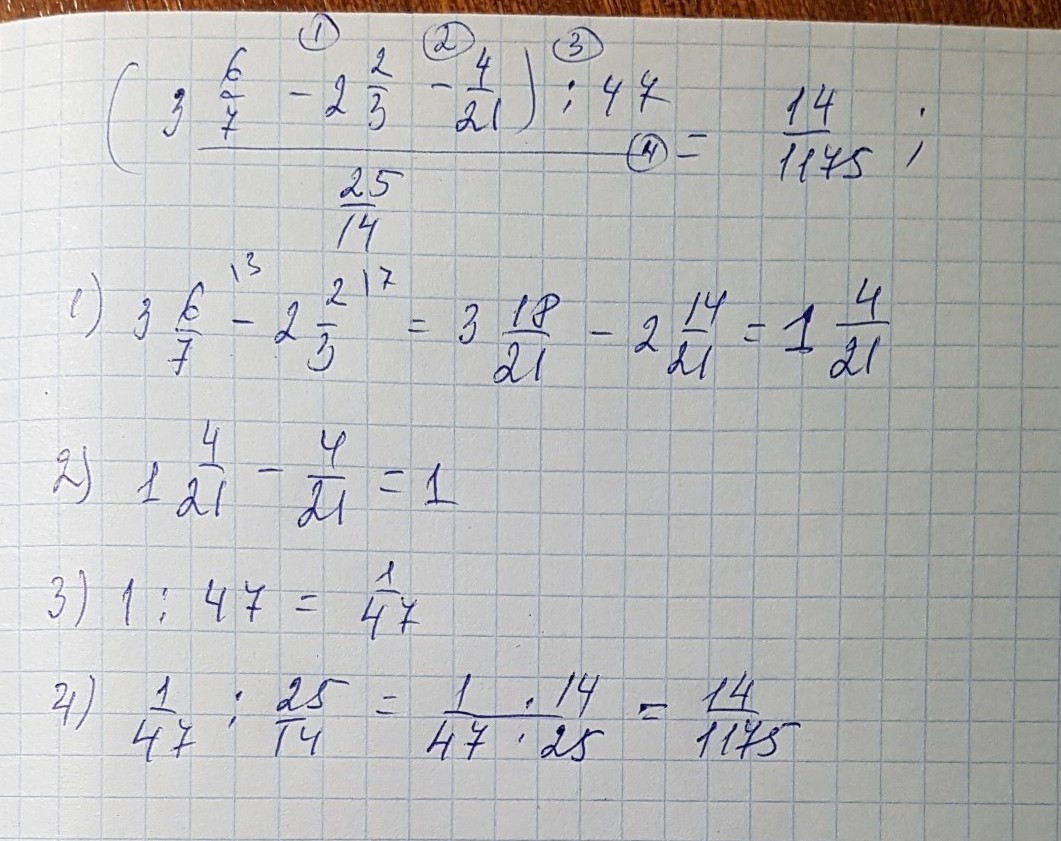 ① ② ③
(3 6/7 - 2 2/3 - 4/21) : 47 ④ = 14/1175 ;
25/14
1) 3 6/7 \3 - 2 2/3 \7 = 3 18/21 - 2 14/21 = 1 4/21
2) 1 4/21 - 4/21 = 1
3) 1 : 47 = 1/47
4) 1/47 : 25/14 = 1 · 14/47 · 25 = 14/1175